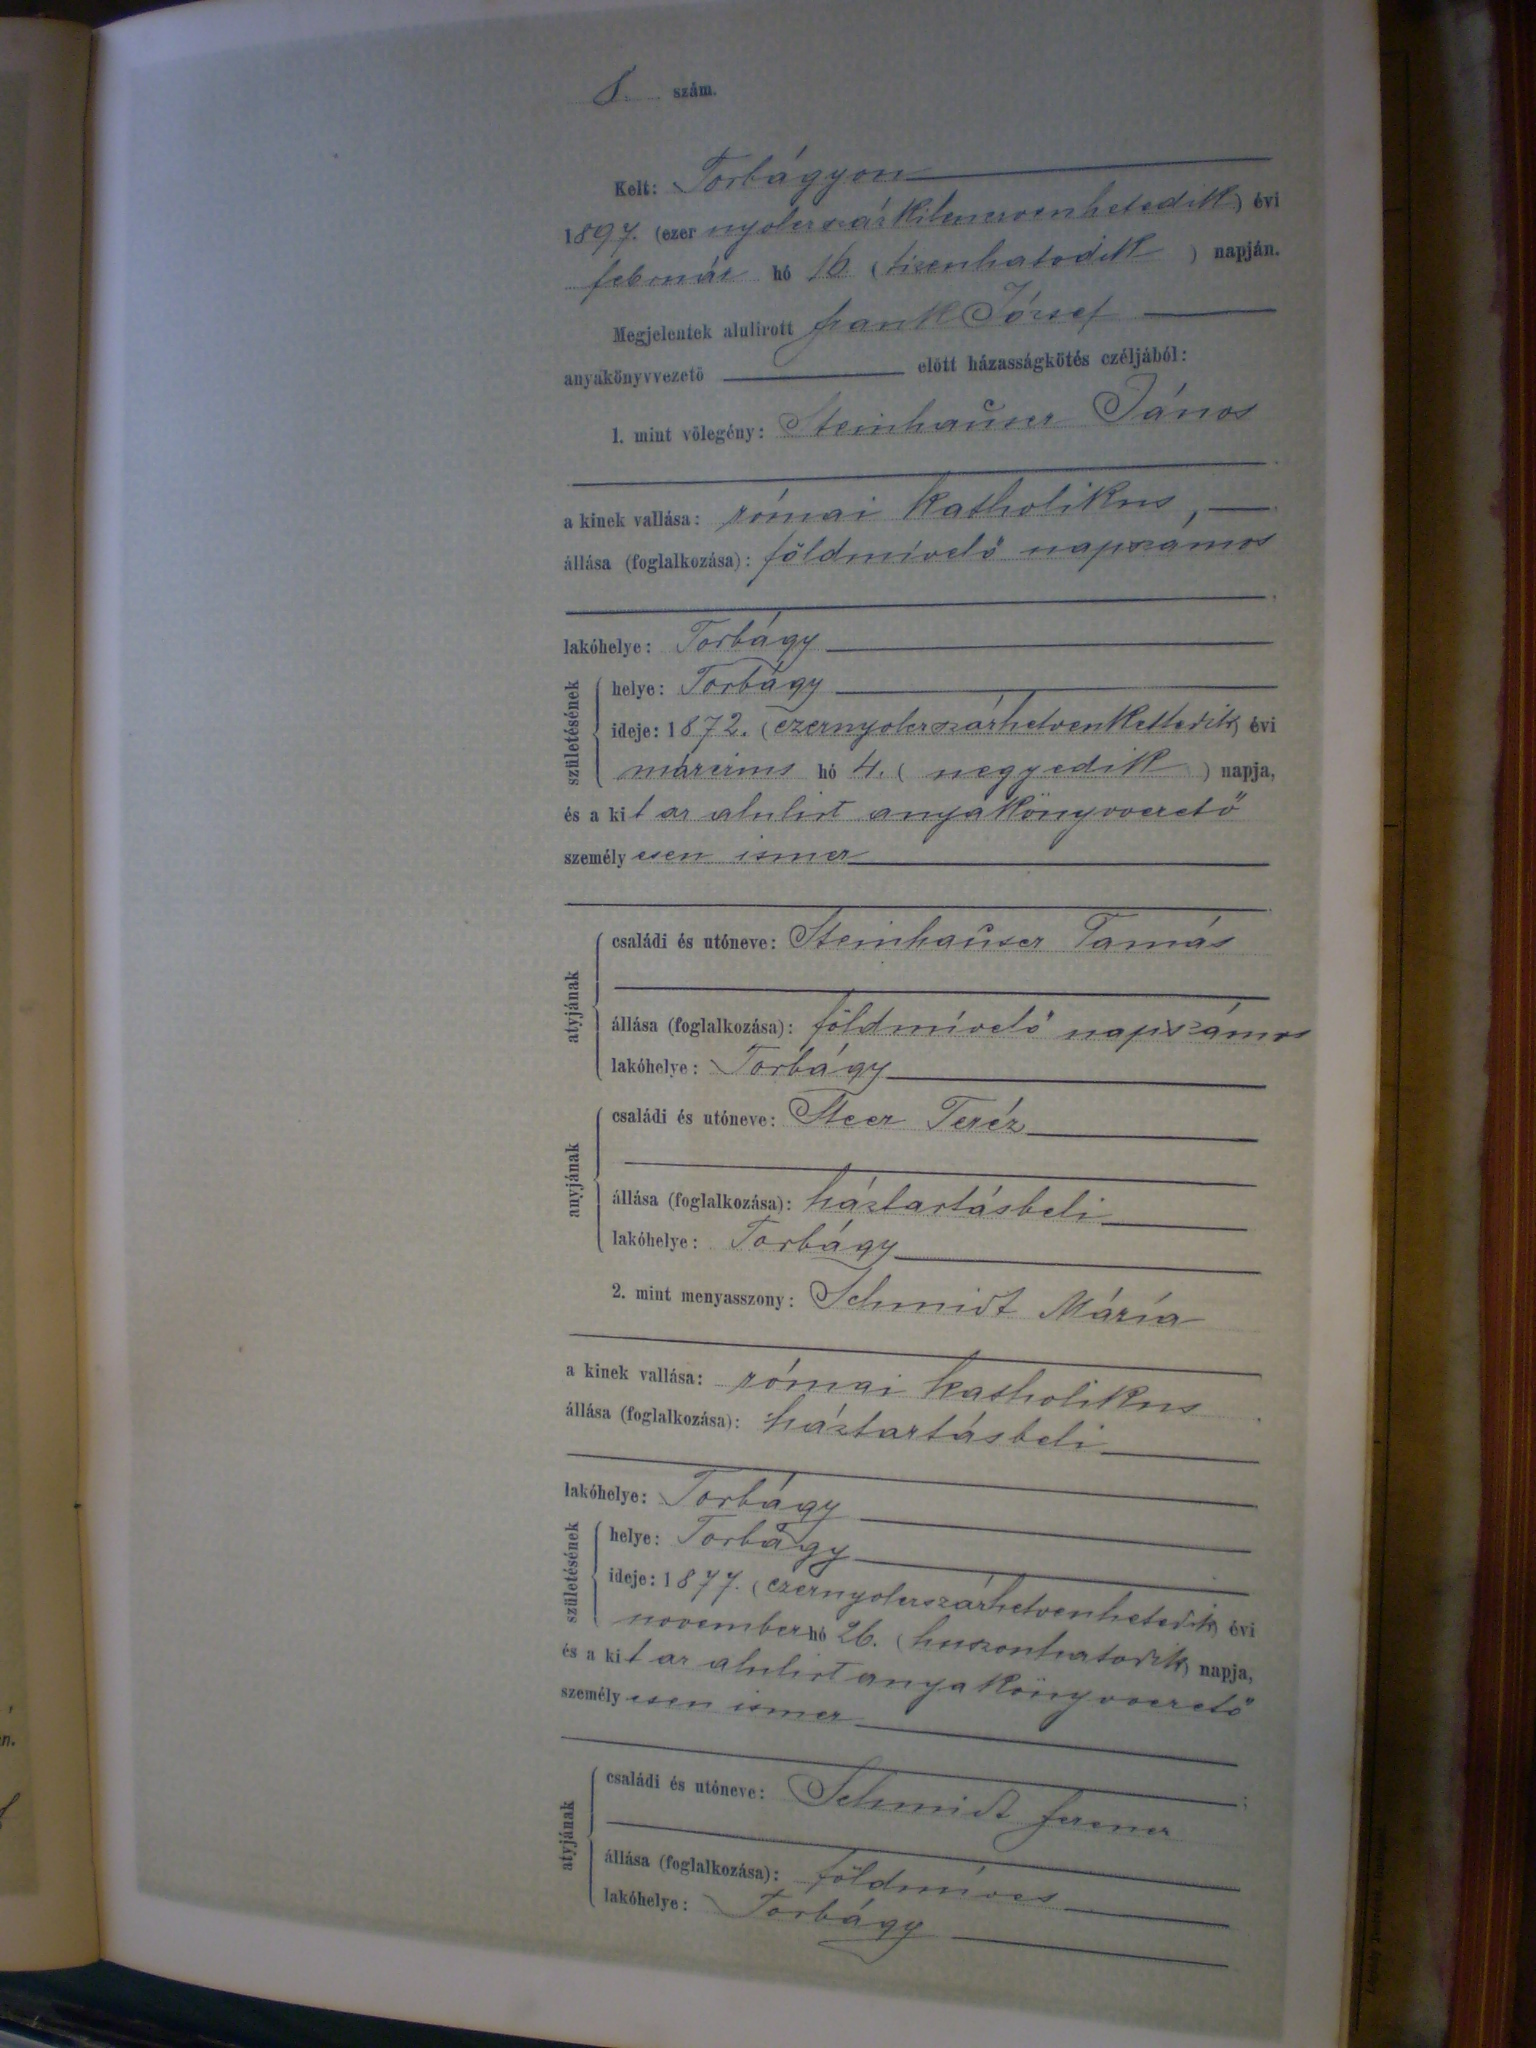 8. szám.
Kelt: Torbágyon
1897. (ezer nyolczszázkilenczvenhetedik) évi
február hó 16 (tizenhatodik) napján.
Megjelentek alulirott Frank József
anyakönyvvezető előtt házasságkötés czéljából:
1. mint vőlegény: Steinhauser János
a kinek vallása: római katholikus,
állása (foglalkozása): földmívelő napszámos
lakóhelye: Torbágy
születésének
helye: Torbágy
ideje: 1872. (ezernyolczszázhetvenkettedik) évi
márczius hó 4. (negyedik) napja,
és a kit az alulirt anyakönyvvezető
személyesen ismer
atyjának
családi és utóneve: Steinhauser Tamás
állása (foglalkozása): földmívelő napszámos
lakóhelye: Torbágy
anyjának
családi és utóneve: Steer Teréz
állása (foglalkozása): háztartásbeli
lakóhelye: Torbágy
2. mint menyasszony: Schmidt Mária
a kinek vallása: római katholikus
állása (foglalkozása): háztartásbeli
lakóhelye: Torbágy
születésének
helye: Torbágy
ideje: 1877. (ezernyolczszázhetvenhetedik) évi
november hó 26. (huszonhatodik) napja,
és a kit az alulirt anyakönyvvezető
személyesen ismer
atyjának
családi és utóneve: Schmidt Ferencz
állása (foglalkozása): földmíves
lakóhelye: Torbágy